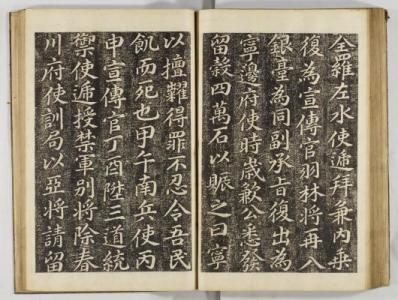 全羅左水使遞拜兼內乘
復為宣傳官羽林將再入
銀臺為同副承旨復出為
寧邊府使時歲歉公悉發
留穀四萬石以賑之曰寧
以擅糶得罪不忍令吾民
飢而死也甲午南兵使丙
申宣傳官丁酉陞三道統
禦使遞授禁軍別將除春
川府使訓局以亞將請留